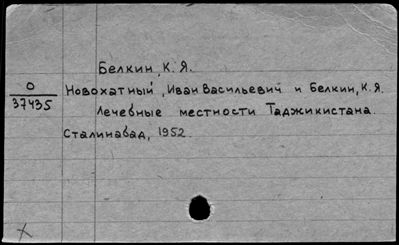 Белкин, К. Я.
О
37435
Новохатный, Иван Васильевич и Белкин, К.Я.
Лечебные местности Таджикистана.
Сталинабад, 1952.
X